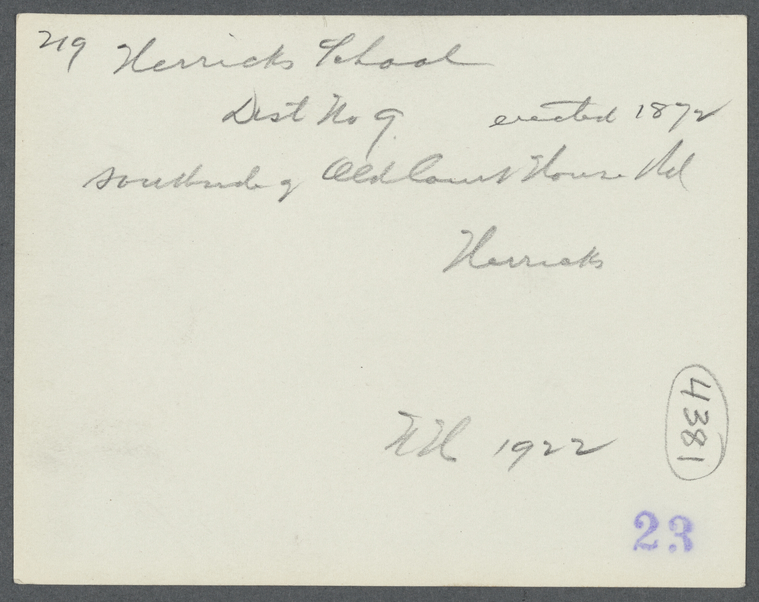 219 Herricks School
Dist No 9. erected 1872
southside of Old Court House Rd
Herricks
NH 1922
4381
23